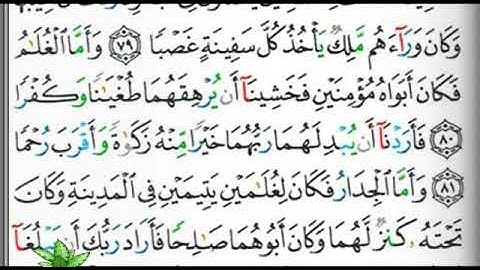 وَكَانَ وَرَآءَهُم مَّلِكٌ يَأْخُذُ كُلَّ سَفِينَةٍ غَصْبًا ٧٩ وَأَمَّا ٱلْغُلَٰمُ
فَكَانَ أَبَوَاهُ مُؤْمِنَيْنِ فَخَشِينَآ أَن يُرْهِقَهُمَا طُغْيَٰنًا وَكُفْرًا
٨٠ فَأَرَدْنَآ أَن يُبْدِلَهُمَا رَبُّهُمَا خَيْرًا مِّنْهُ زَكَوٰةً وَأَقْرَبَ رُحْمًا
٨١ وَأَمَّا ٱلْجِدَارُ فَكَانَ لِغُلَٰمَيْنِ يَتِيمَيْنِ فِى ٱلْمَدِينَةِ وَكَانَ
تَحْتَهُۥ كَنزٌ لَّهُمَا وَكَانَ أَبُوهُمَا صَٰلِحًا فَأَرَادَ رَبُّكَ أَن يَبْلُغَآ